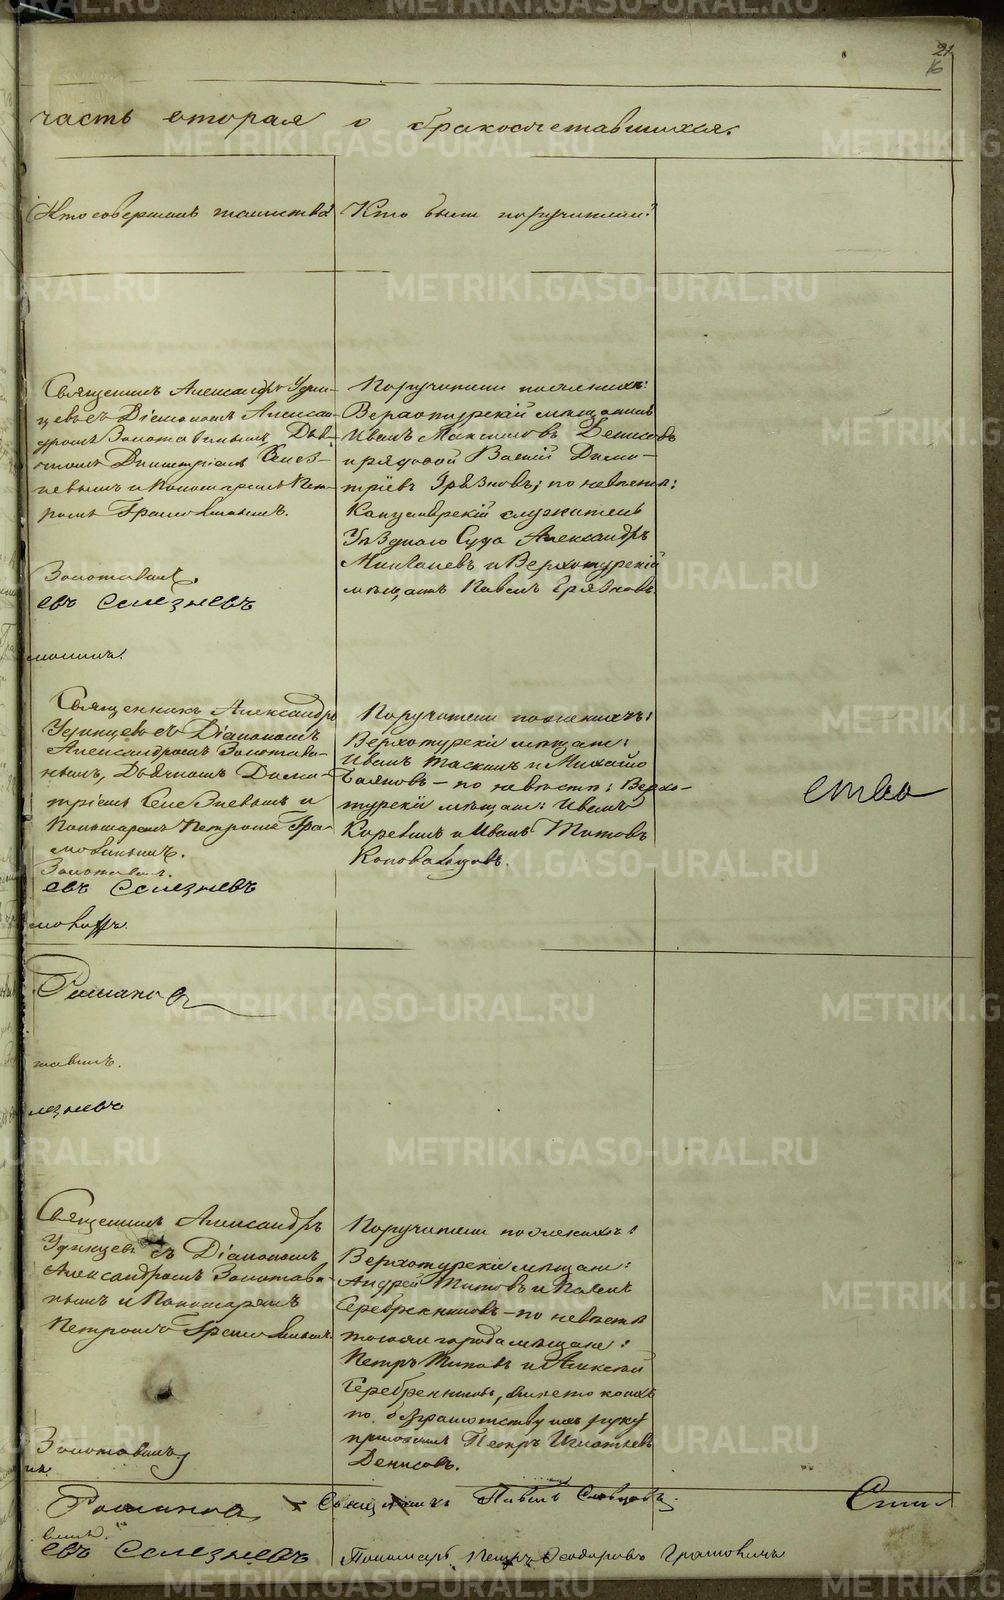 21
16
часть вторая о бракосочетавшихся.
Кто совершалъ таинство
Кто были поручители?
Священникъ Александръ Удин-
цевъ съ Діакономъ Алексан-
дромъ Золотавинымъ, Дья-
чкомъ Димитріемъ Селез-
невымъ и Пономаремъ Пет-
ромъ Грамовинымъ.
Золотавинъ.
евъ Селезневъ
Поручители по женихѣ:
Верхотурскій мѣщанинъ
Иванъ Максимовъ Денисовъ
и рядовой Василій Дими-
тріевъ Грязновъ; по невѣстѣ:
Канцелярскій служитель
Уѣзднаго Суда Александръ
Михалевъ и Верхотурскій
мѣщанъ Павелъ Грязновъ
Священникъ Александръ
Удинцевъ съ Діакономъ
Александромъ Золотави-
нымъ, Дьячкомъ Дими-
тріемъ Селезневымъ и
Пономаремъ Петромъ Гра-
мовинымъ.
Золотавинъ.
евъ Селезневъ
Поручители по женихѣ:
Верхотурскіе мѣщане:
Иванъ Таскинъ и Михайло
Баяновъ – по невѣстѣ: Верхо-
турскіе мѣщане: Иванъ
Коревинъ и Иванъ Титовъ
Коновальцовъ.
ство
Романов
тавинъ.
лезневъ
Священникъ Александръ
Удинцевъ съ Діакономъ
Александромъ Золотави-
нымъ и Пономаремъ
Петромъ Грамовинымъ
Золотавинъ
Поручители по женихѣ:
Верхотурскіе мѣщане:
Андрей Титовъ и Павелъ
Серебренниковъ – по невѣстѣ
тогоже города мѣщане:
Петръ Титовъ и Алексѣй
Серебренниковъ, вмѣсто коихъ
по безграмотству ихъ руку
приложилъ Петръ Игнатьевъ
Денисовъ.
Романова Священникъ Павелъ Словцовъ.
евъ Селезневъ Пономарь Петръ Ѳеодоровъ Грамовинъ
METRIKI.GASO-URAL.RU